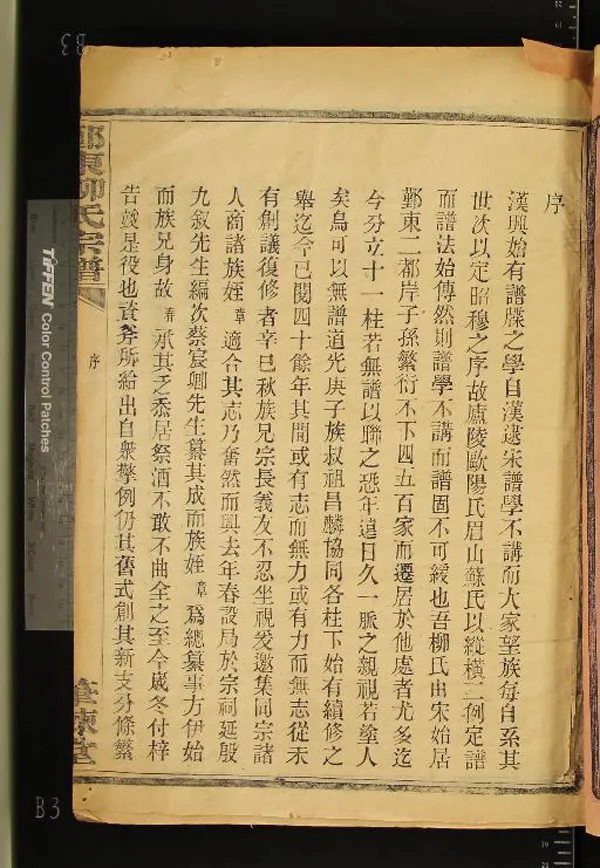 序
漢興始有譜牒之學自漢逮宋譜學不講而大家望族每自系其
世次以定昭穆之序故廬陵歐陽氏眉山蘇氏以縱橫二例定譜
而譜法始傳然則譜學不講而譜固不可緩也吾柳氏由宋始居
鄞東二都岸子孫繁衍不下四五百家而遷居於他處者尤多迄
今分立十一柱若無譜以聯之恐年遠日久一脈之親視若塗人
矣烏可以無譜道光庚子族叔祖昌麟協同各柱下始有續修之
舉迄今已閱四十餘年其間或有志而無力或有力而無志從未
有創議復修者辛巳秋族兄宗長義友不忍坐視爰邀集同宗諸
人商諸族姪章適合其志乃奮然而興去年春設局於宗祠延殷
九叙先生編次蔡宸卿先生纂其成而族姪章爲總纂事方伊始
而族兄身故 承其乏忝居祭酒不敢不曲全之至今歲冬付梓
告竣是役也資斧所給出自衆擎例仍其舊式創其新支分條繁
鄞東柳氏宗譜
序
TIFFEN Color Control Patches
B3
B3